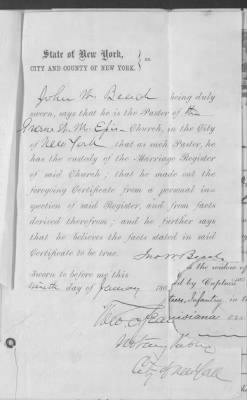 State of New York,
CITY AND COUNTY OF NEW YORK. } ss.
John W. Beach being duly
sworn, says that he is the Pastor of the
Church, in the City
of New York that as such Pastor, he
has the custody of the Marriage Register
of said Church; that he made out the
foregoing Certificate from a personal inspection
of said Register, and from facts
derived therefrom; and he further says
that he believes the facts stated in said
Certificate to be true.
Jno W Beach
Sworn to before me this
day of January 186
the widow of
by Captain
Infantry, in
Notary Public
City of